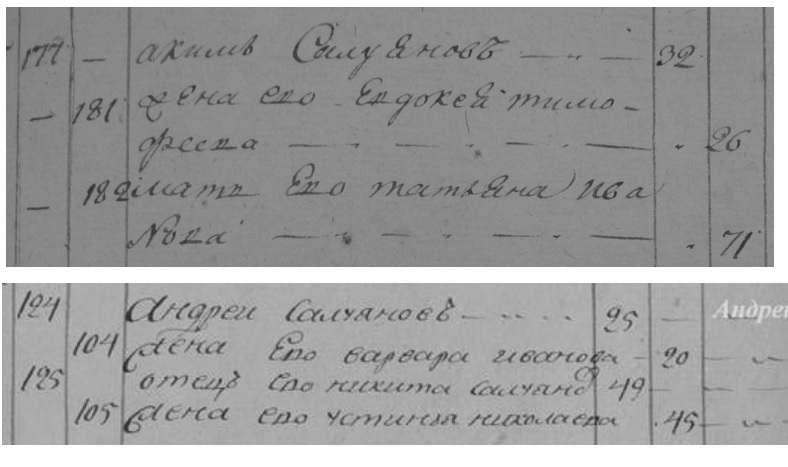 177 — акимъ Салуяновъ — „ — 32
— 181 жена ево Евдокея тимо-
феева — — — — — . 26
— 182 мать Ево татьяна ива
Nова — — — — — . 71
124 Андреи Салуяновъ — . . . 25 — Андреи
104 жена Ево варвара иванова — 20 — „
125 отецъ ево никита салуянов 49 — —
105 жена ево устинья николаева . 45 — „